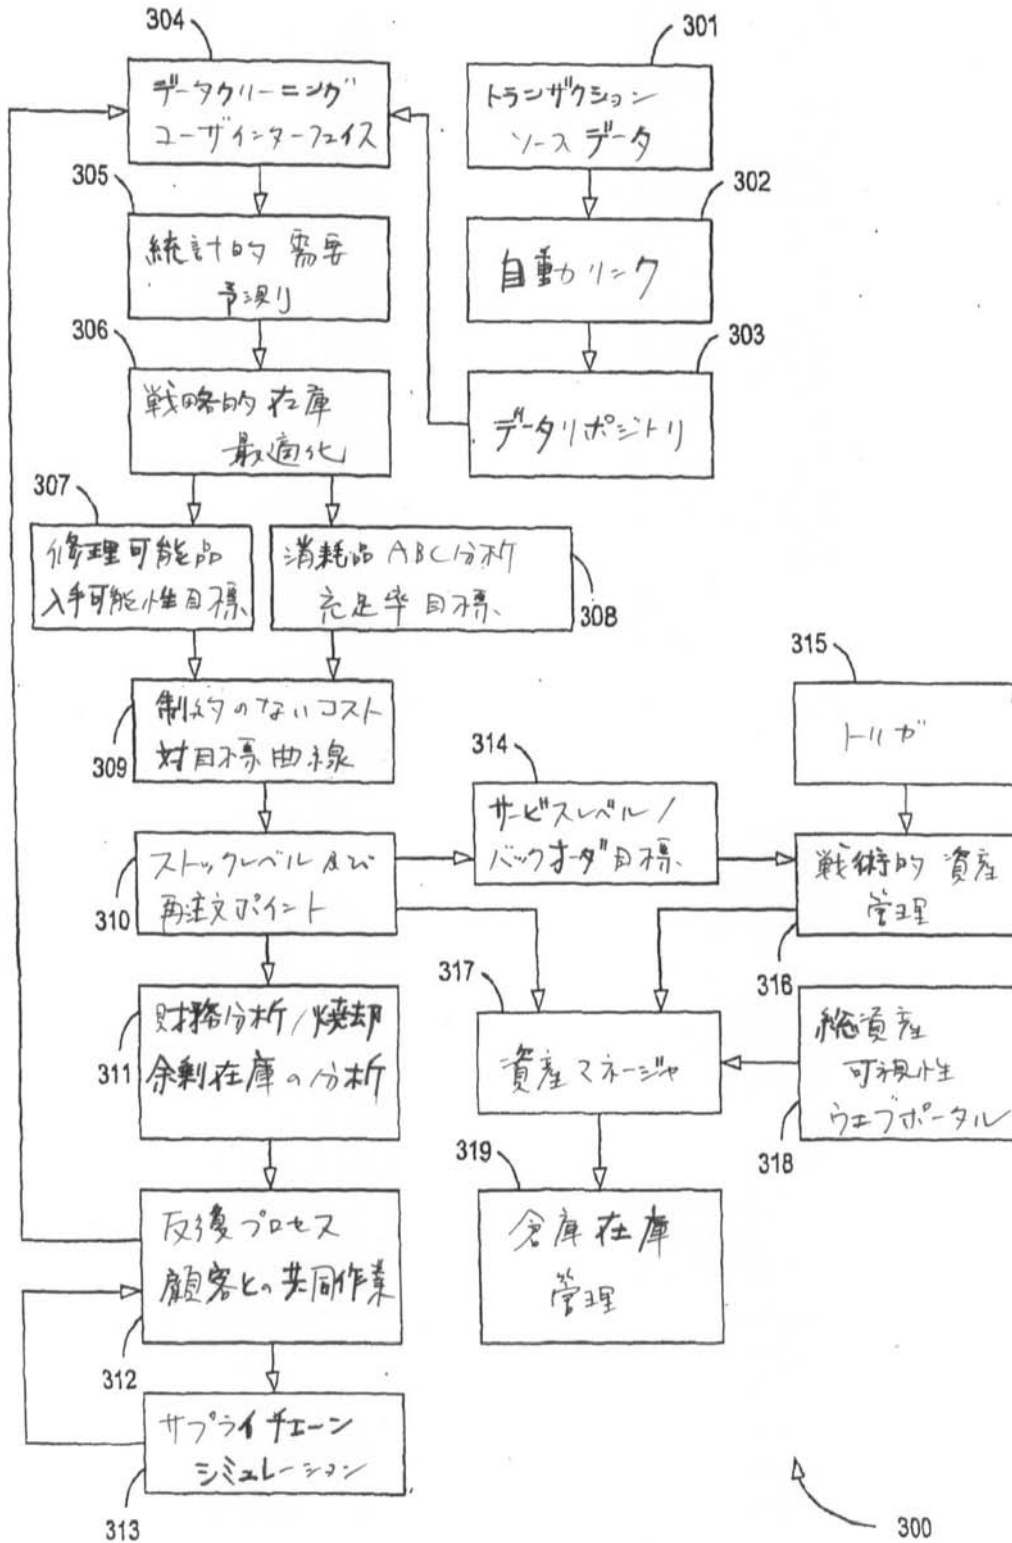 304
データクリーニング
ユーザインターフェイス
301
トランザクション
ソースデータ
305
統計的 需要
予測
302
自動リンク
306
戦略的在庫
最適化
303
データリポジトリ
307
修理可能品
入手可能性目標
消耗品 ABC分析
充足率目標
308
制約のないコスト
対目標曲線
309
314
サービスレベル/
バックオーダ目標
315
トリガ
ストックレベル及び
再注文ポイント
310
戦術的 資産
管理
316
財務分析/焼却
余剰在庫の分析
311
317
資産マネージャ
総資産
可視性
ウェブポータル
318
反復プロセス
顧客との共同作業
312
319
倉庫在庫
管理
サプライチェーン
シミュレーション
313
300